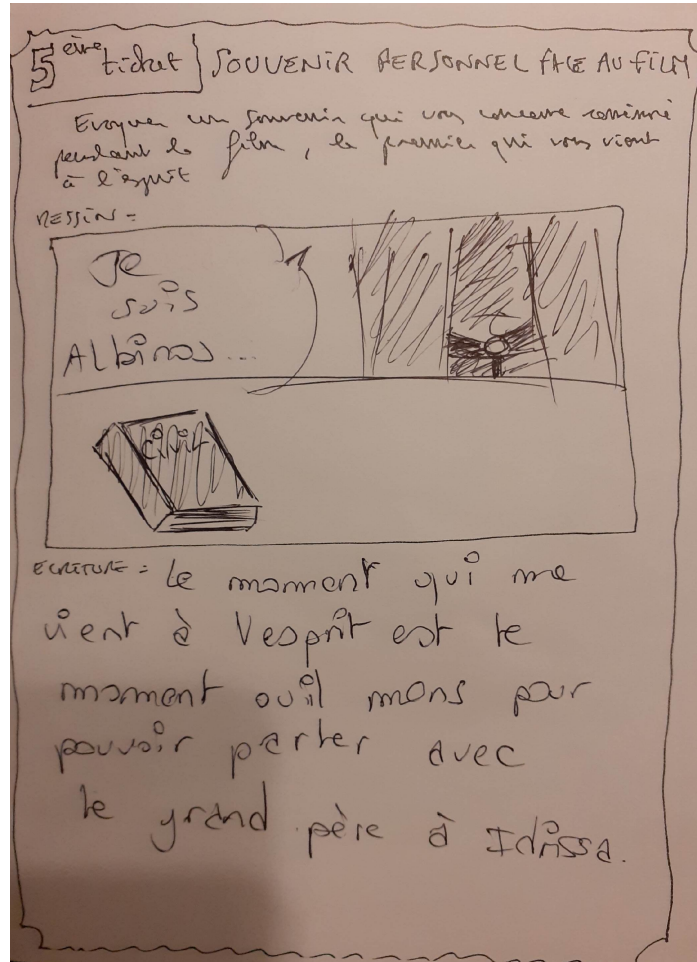 5 ème ticket SOUVENIR PERSONNEL FACE AU FILM
Evoquer un souvenir qui vous concerne
pendant le film, le premier qui vous vient
à l'esprit
DESSIN =
Je
suis
Albinos...
civil
ECRITURE = Le moment qui me
vient à l'esprit est le
moment ou il mens pour
pouvoir parler avec
le grand père à Idrissa.